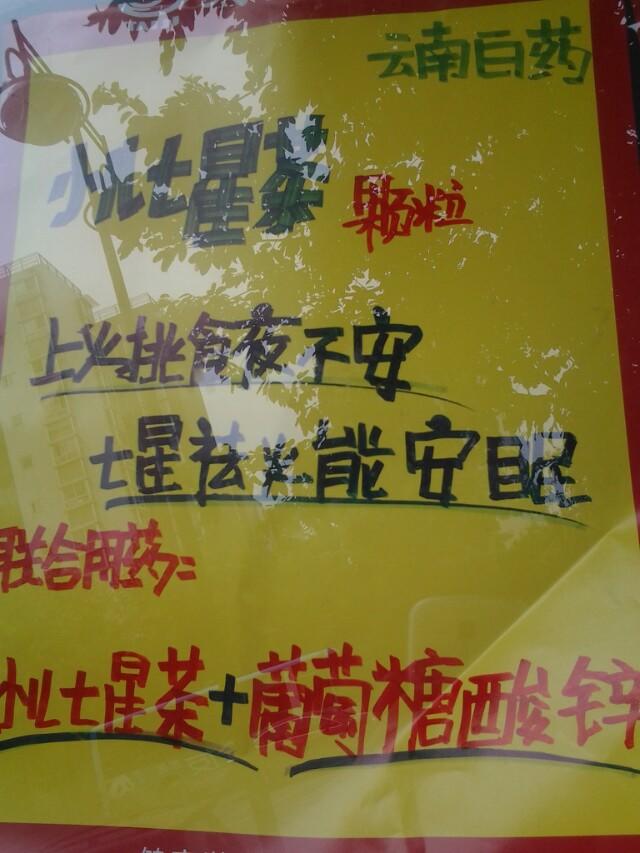 云南白药
小儿七星茶 颗粒
上火挑食夜不安
七星祛火能安眠
联合用药:
小儿七星茶+葡萄糖酸锌